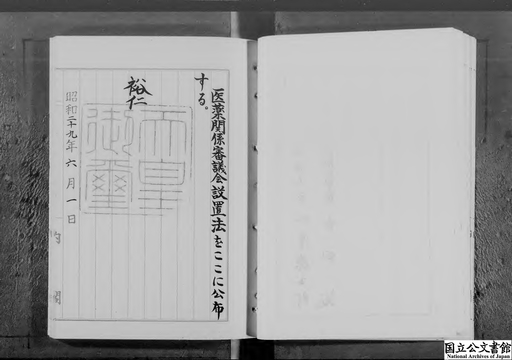 医薬関係審議会設置法をここに公布
する。
裕仁
天皇
御璽
昭和二十九年六月一日
国立公文書館
National Archives of Japan